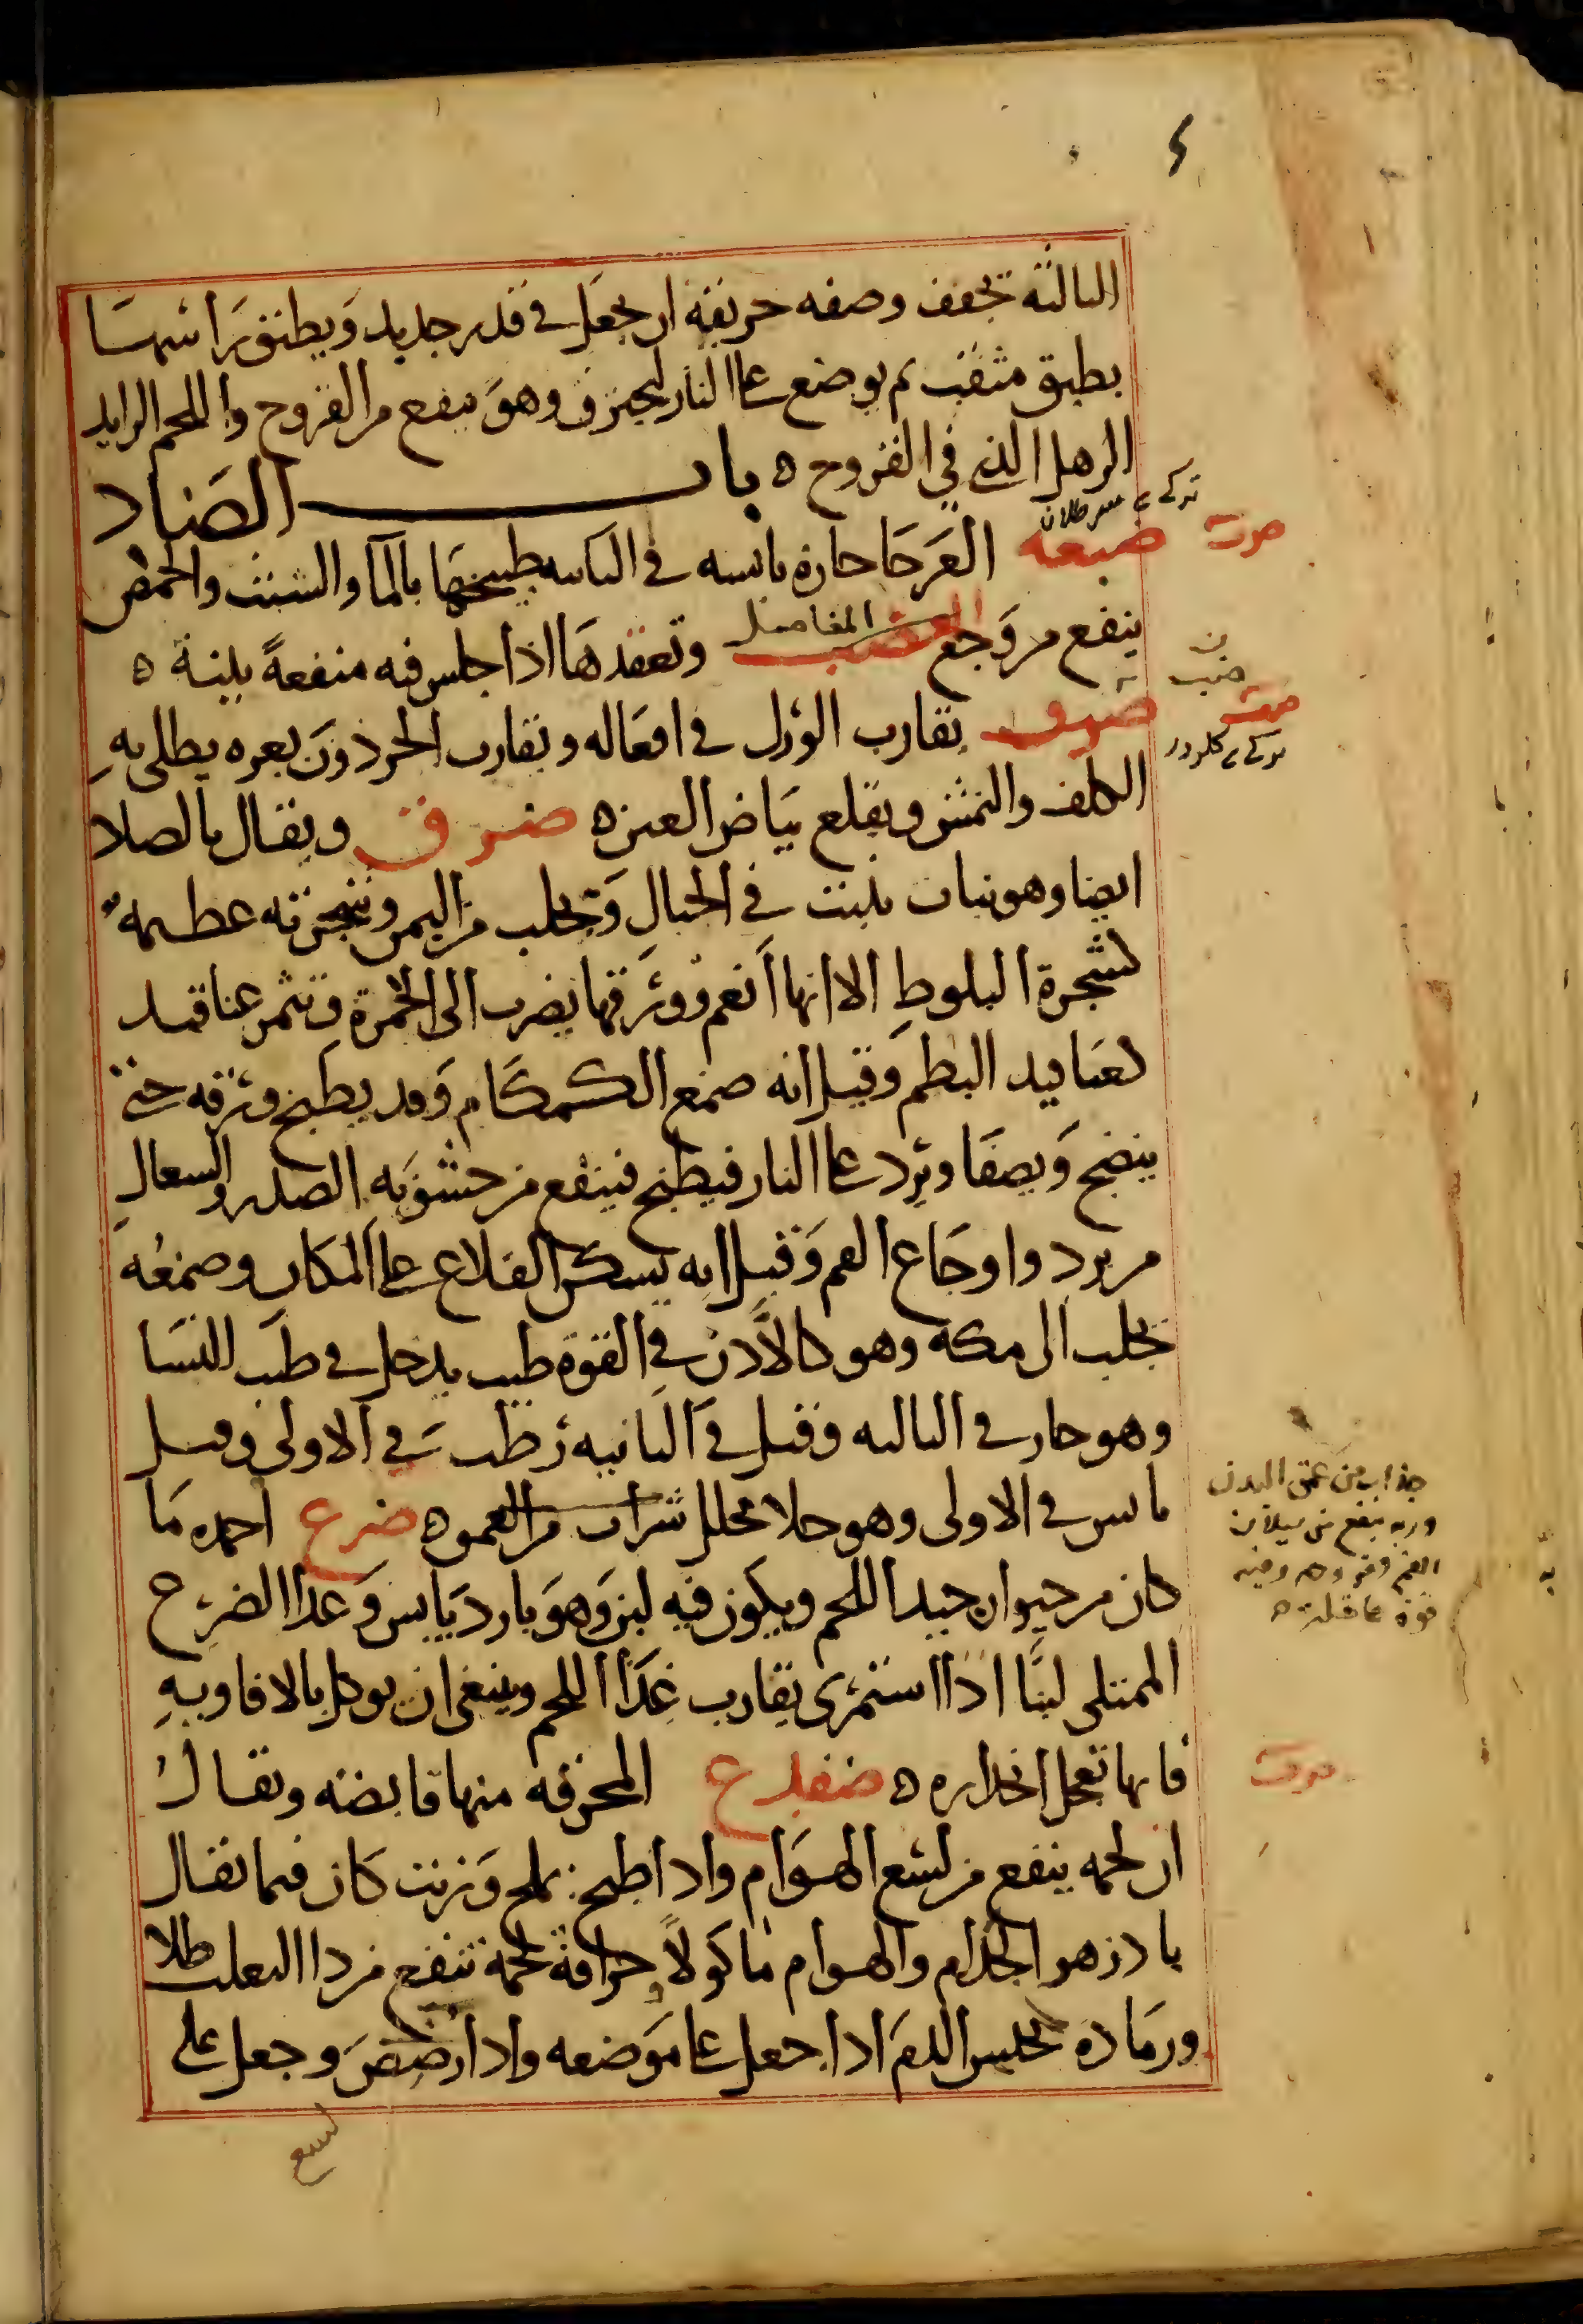 الثالثة تجفف وصفه حريقه ان يجعل في قدر جديد ويطبق راسها
بطبق مثقب ثم يوضع على النار ليحترق وهو ينفع من القروح واللحم الزايد
الرهل الذي في القروح ه باب الضاد
ضبعة العرجا حارة يابسه في الثانيه طبيخها بالمآ والشبث والحمص
ينفع من وجع المفاصل وتعقدها اذا جلس فيه منفعةً بلينة ه
يقارب الورل في افعاله ويقارب الحرذون بعره يطلى به
الكلف والنمش ويقلع بياض العين ه ضرو ويقال بالصاد
ايضا وهو نبات ينبت في الجبال ويجلب من اليمن وشجرته عظيمه
كشجرة البلوط الا انها انعم وورقها يضرب الى الحمرة وتثمر عناقيد
كعناقيد البطم وقيل انه صمغ الكمكام وقد يطبخ ورقه حتى
ينضج ويصفا ويرد على النار فيطبخ فينفع من خشونه الصدر والسعال
من برد واوجاع الفم وقيل انه يسكن القلاع على المكان وصمغه
يجلب الى مكة وهو كالاذن في القوة طيب يدخل في طيب النسا
وهو حار في الثالثه وقيل في الثانيه رطب في الاولى وقيل
يابس في الاولى وهو جلا محلل شراب من العمو ه ضرع احمده ما
كان من حيوان جيد اللحم ويكون فيه لبن وهو بارد يابس وغذا الضرع
الممتلى لبنًا اذا استمرى يقارب غذا اللحم وينبغي ان يوكل بالافاويه
فانها تعجل انحداره ه ضفدع المحرقه منها قابضه ويقال
ان لحمه ينفع من لسع الهوام واذا طبخ بملح وزيت كان فيما يقال
بادزهر الجذام والهوام ماكولاً وحراقة لحمه تنفع من دا الثعلب طلا
ورماده يحبس الدم اذا جعل على موضعه واذا رضض وجعل على
لسع
ضب
جذاب من عمق البدن
وربه ينفع من سيلان
الفم وقروحه وفيه
قوة عاقلة ه